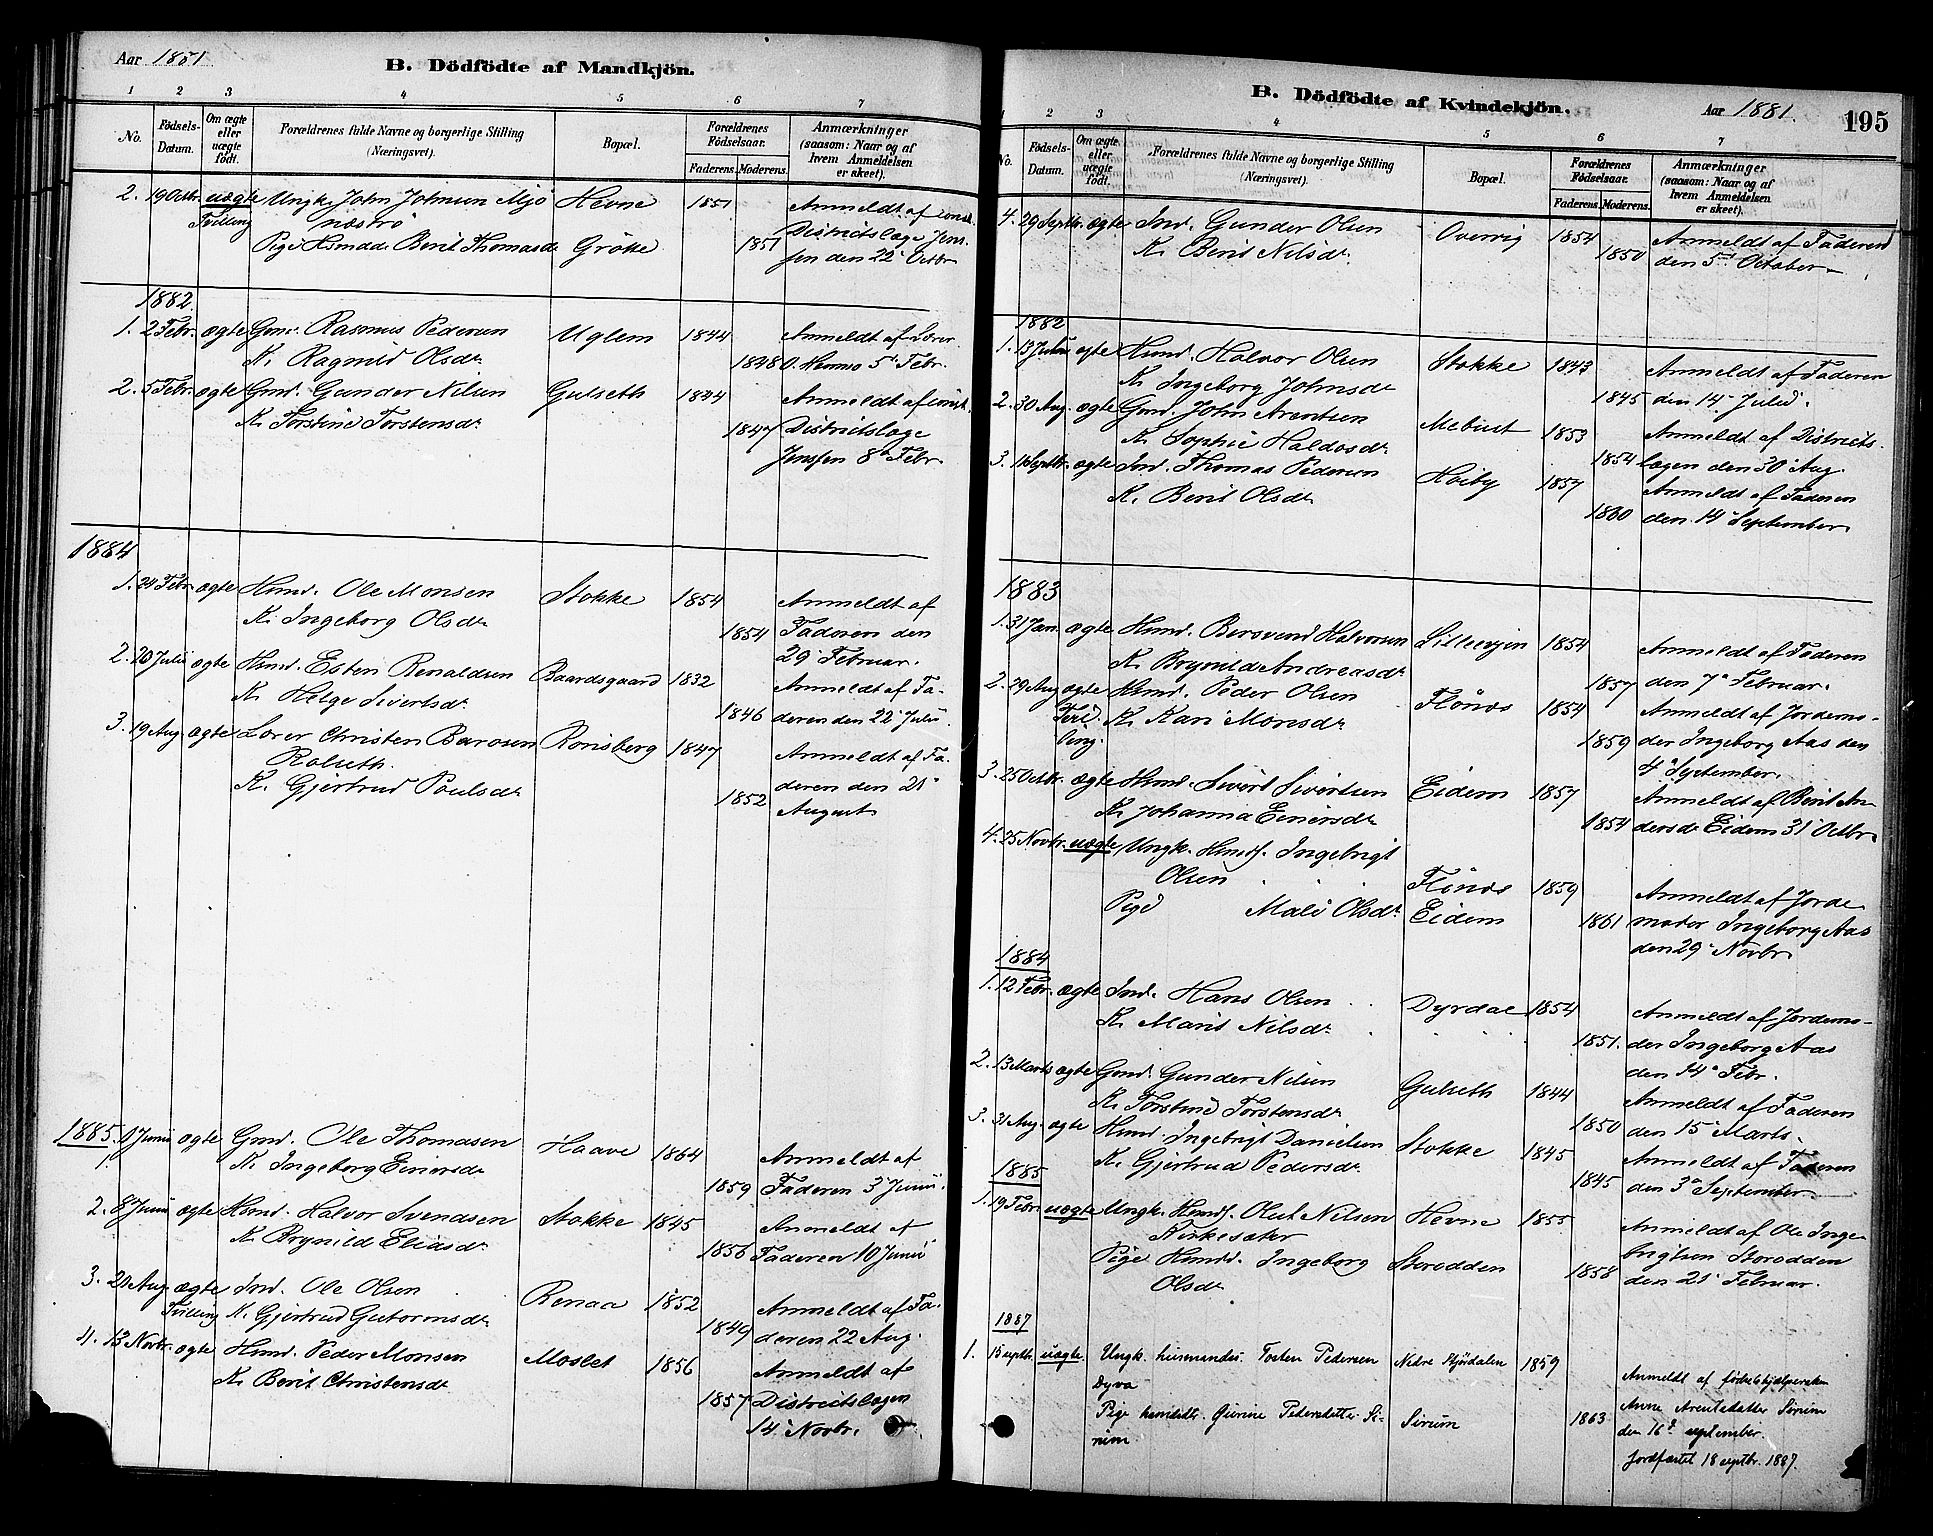 Aar 1881.
B. Dödfödte af Mandkjön.
1 2 3 4 5 6 7
No. Födsels-Datum. Om ægte eller uægte födt. Forældrenes fulde Navne og borgerlige Stilling (Næringsvei). Bopæl. Forældrenes Födselsaar. Faderens. Moderens. Anmærkninger (saasom: Naar og af hvem Anmeldelsen er skeet).
2. 19 Octbr. uægte Ungk. John Johnsen Mjö Hevne 1851 Anmeldt af const.
Tvilling næströ Districtslæge Jens-
Pige Husmdd. Berit Thomasdr Grötte 1851 sen den 22 Octbr
1882
1. 2 Febr. ægte Gmd. Rasmus Pedersen Uglem 1844 Anmeldt af Lærer
K. Ragnild Olsdr 1848 O. Hemmo 5t Febr.
2. 5 Febr. ægte Gmd. Gunder Nilsen Gulseth 1844 Anmeldt af const.
K. Torstine Torstensdr 1847 Districtslæge
Jenssen 8de Febr.
1884
1. 24 Febr. ægte Husmd. Ole Monsen Stokke 1854 Anmeldt af
K. Ingeborg Olsdr 1854 Faderen den
29 Februar.
2. 20 Juli ægte Husmd. Esten Renaldsen Baardsgaard 1832 Anmeldt af Fa-
K. Helge Sivertsdr 1846 deren den 22 Juli.
3. 19 Aug. ægte Lærer Christen Barosen Ronisberg 1847 Anmeldt af Fa-
Rolseth. deren den 21
K. Gjertrud Poulsdr 1852 August
1885. 1 Juni ægte Gmd. Ole Thomasen Haave 1864 Anmeldt af
1. K. Ingeborg Einersdr 1859 Faderen 3 Juni.
2. 8 Juni ægte Husmd. Halvor Svendsen Stokke 1845 Anmeldt af
K. Brynild Eliasdr 1856 Faderen 10 Juni
3. 21 Aug ægte Ind. Ole Olsen Renaa 1852 Anmeldt af Fa-
Tvilling K. Gjertrud Gutormsdr 1849 deren 22 Aug.
4. 13 Novbr. ægte Husmd. Peder Monsen Moslet 1856 Anmeldt af
K. Berit Christensdr 1857 Districtslægen
14 Novbr.
B. Dödfödte af Kvindekjön.
Aar 1881.
195
1 2 3 4 5 6 7
No. Födsels-Datum. Om ægte eller uægte födt. Forældrenes fulde Navne og borgerlige Stilling (Næringsvei). Bopæl. Forældrenes Födselsaar. Faderens. Moderens. Anmærkninger (saasom: Naar og af hvem Anmeldelsen er skeet).
4. 29 Septbr. ægte Ind. Gunder Olsen Overvig 1854 Anmeldt af Faderen
K. Berit Nilsdr. 1850 den 5t October
1882
1. 13 Juli ægte Husmd. Halvor Olsen Stokke 1843 Anmeldt af Faderen
K. Ingeborg Johnsdr 1845 den 14 Juli.
2. 30 Aug. ægte Gmd. John Arentsen Mebust 1853 Anmeldt af Districts-
K. Sophie Haldosdr. 1854 lægen den 30 Aug.
3. Septbr. ægte Ind. Thomas Pedersen Hoiby 1857 Anmeldt af Faderen
K. Berit Olsdr 1860 den 14 September
1883
1. 31 Jan. ægte Husmd. Bersvend Halvorsen Lillevjen 1854 Anmeldt af Faderen
K. Brynild Andreasdr 1857 den 7de Februar.
2. 29 Aug ægte Husmd. Peder Olsen Flönæs 1854 Anmeldt af Jordemo-
K. Kari Monsdr 1859 der Ingeborg Aas den
4de September.
3. 25 Octbr. ægte Husmd. Sivert Sivertsen Eidem 1857 Anmeldt af Berit An-
K. Johanna Einersdr 1854 dersdr Eidem 31 Octbr
4. 25 Novbr. uægte Ungk. Husmds. Ingebrigt
Olsen Flönæs 1859 Anmeldt af Jorde-
Pige Mali Olsdr. Eidem 1861 moder Ingeborg Aas
den 29 Novbr
1884
1. 12 Febr. ægte Ind. Hans Olsen Dyrdal 1854 Anmeldt af Jordemo-
K. Marit Nilsdr 1851. der Ingeborg Aas
den 14de Febr.
2. 13 Marts ægte Gmd. Gunder Nilsen Gulseth 1844 Anmeldt af Faderen
K. Torstine Torstensdr 1850 den 15 Marts.
3. 31 Aug. ægte Husmd. Ingebrigt Danielsen Stokke 1845 Anmeldt af Faderen
K. Gjertrud Pedersdr 1845 den 3de September
1885
1. 19 Febr. uægte Ungk. Husmds. Oluf Nilsen Hevne 1855 Anmeldt af Ole Inge-
Kirkesæter brigtsen Storodden
Pige Husmdd. Ingeborg Storodden 1858 den 21 Februar.
Olsdr
1887
1. 15 septbr. uægte. Ungk. husmandss. Torsten Pedersen Nedre Stjördalen 1859 Anmeldt af fødselshjælpersken
Dyva
Pige husmddtr. Gurine Pedersdatter Si- Sirum 1863. Anne Arentsdatter Sirum
rum. den 16de september.
Jordfæstet 18 septbr. 1887.